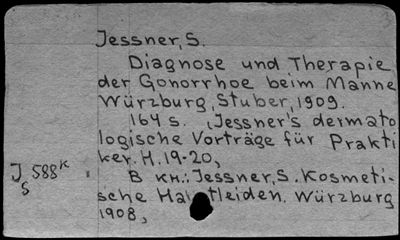 Jessner, S.
Diagnose und Therapie
der Gonorrhoe beim Manne
Würzburg, Stuber, 1909.
164 s. (Jessner's dermato
logische Vorträge für Prakti
ker. H. 19-20,
J 588 к
S
В кн.: Jessner, S. Kosmeti-
sche Hautleiden. Würzburg
1908,